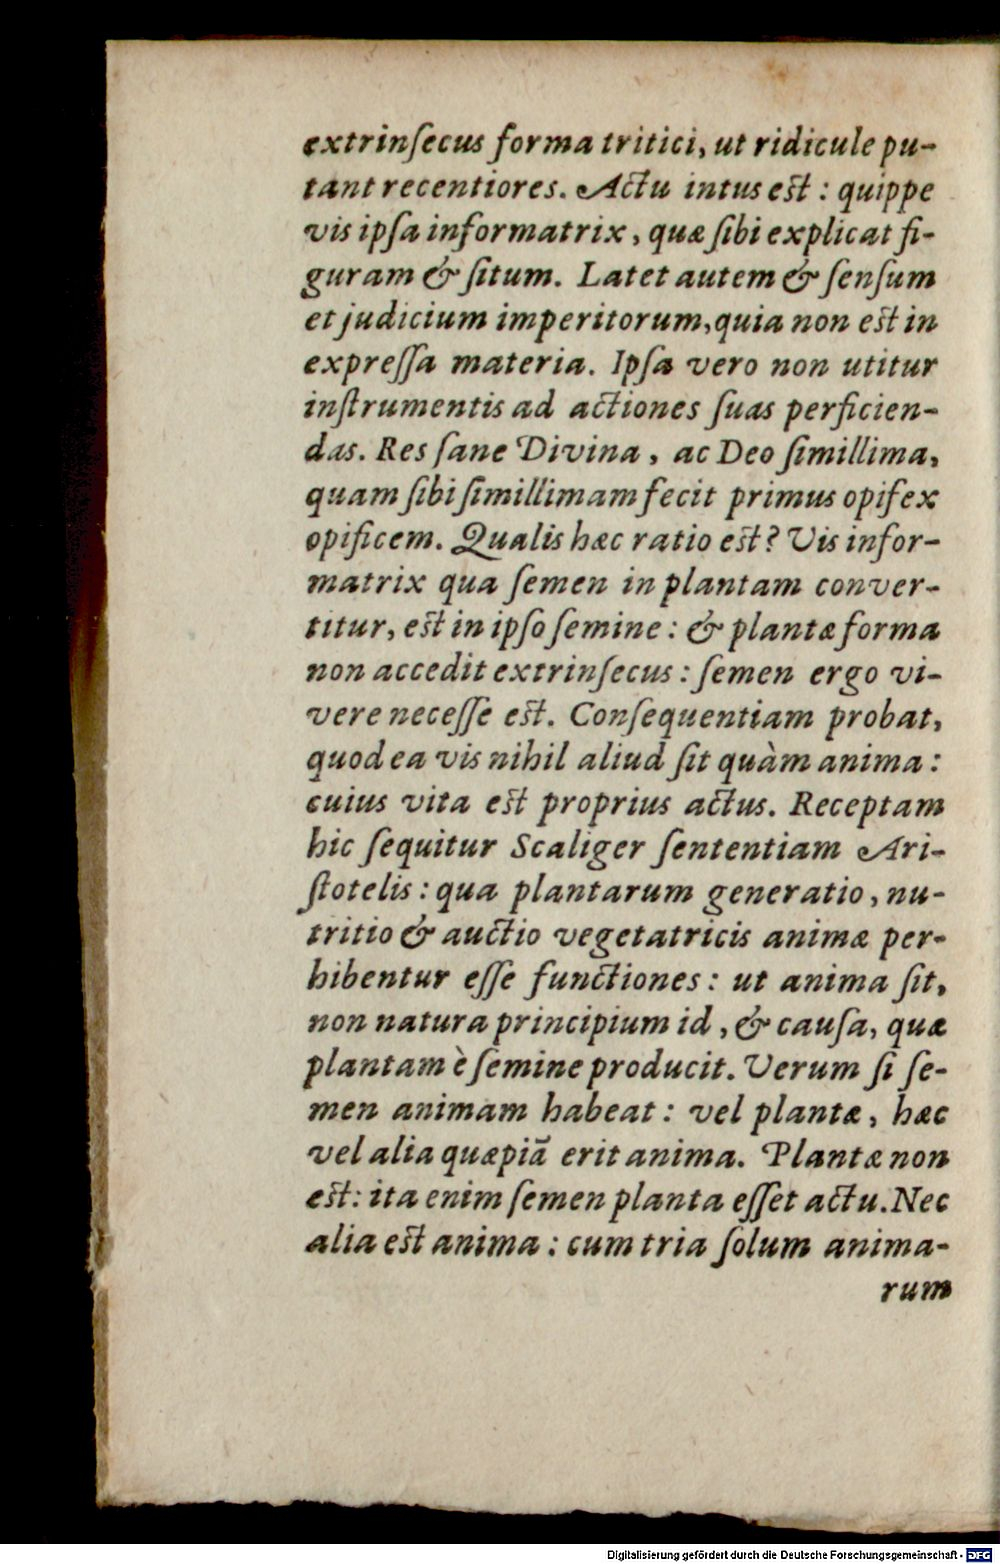 extrinſecus forma tritici, ut ridicule pu-
tant recentiores. Actu intus est : quippe
vis ipſa informatrix, quæ ſibi explicat fi-
guram & ſitum. Latet autem & ſenſum
et judicium imperitorum, quia non est in
expreſſa materia. Ipſa vero non utitur
inſtrumentis ad actiones ſuas perficien-
das. Res ſane Divina, ac Deo ſimillima,
quam ſibi ſimillimam fecit primus opifex
opificem. Qualis hæc ratio est? Vis infor-
matrix qua ſemen in plantam conver-
titur, est in ipſo ſemine : & plantæ forma
non accedit extrinſecus : ſemen ergo vi-
vere neceſſe est. Conſequentiam probat,
quod ea vis nihil aliud ſit quàm anima :
cuius vita est proprius actus. Receptam
hic ſequitur Scaliger ſententiam Ari-
ſtotelis : qua plantarum generatio, nu-
tritio & auctio vegetatricis animæ per-
hibentur eſſe functiones : ut anima ſit,
non natura principium id, & cauſa, quæ
plantam è ſemine producit. Verum ſi ſe-
men animam habeat : vel plantæ, hæc
vel alia quæpiã erit anima. Plantæ non
est : ita enim ſemen planta eſſet actu. Nec
alia est anima : cum tria ſolum anima-
rum
Digitalisierung gefördert durch die Deutsche Forschungsgemeinschaft - DFG